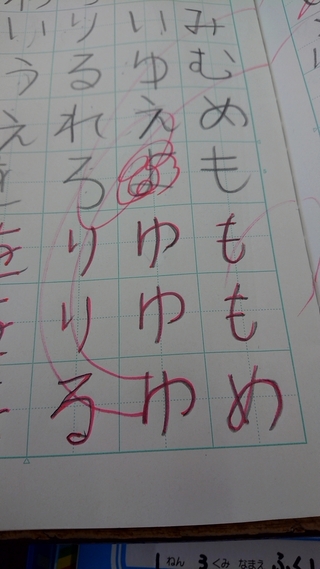 みむめもももめ
いゆえよゆゆゆ
りるれろりりる
いうえををを
1ねん 3くみ なまえ ふくい